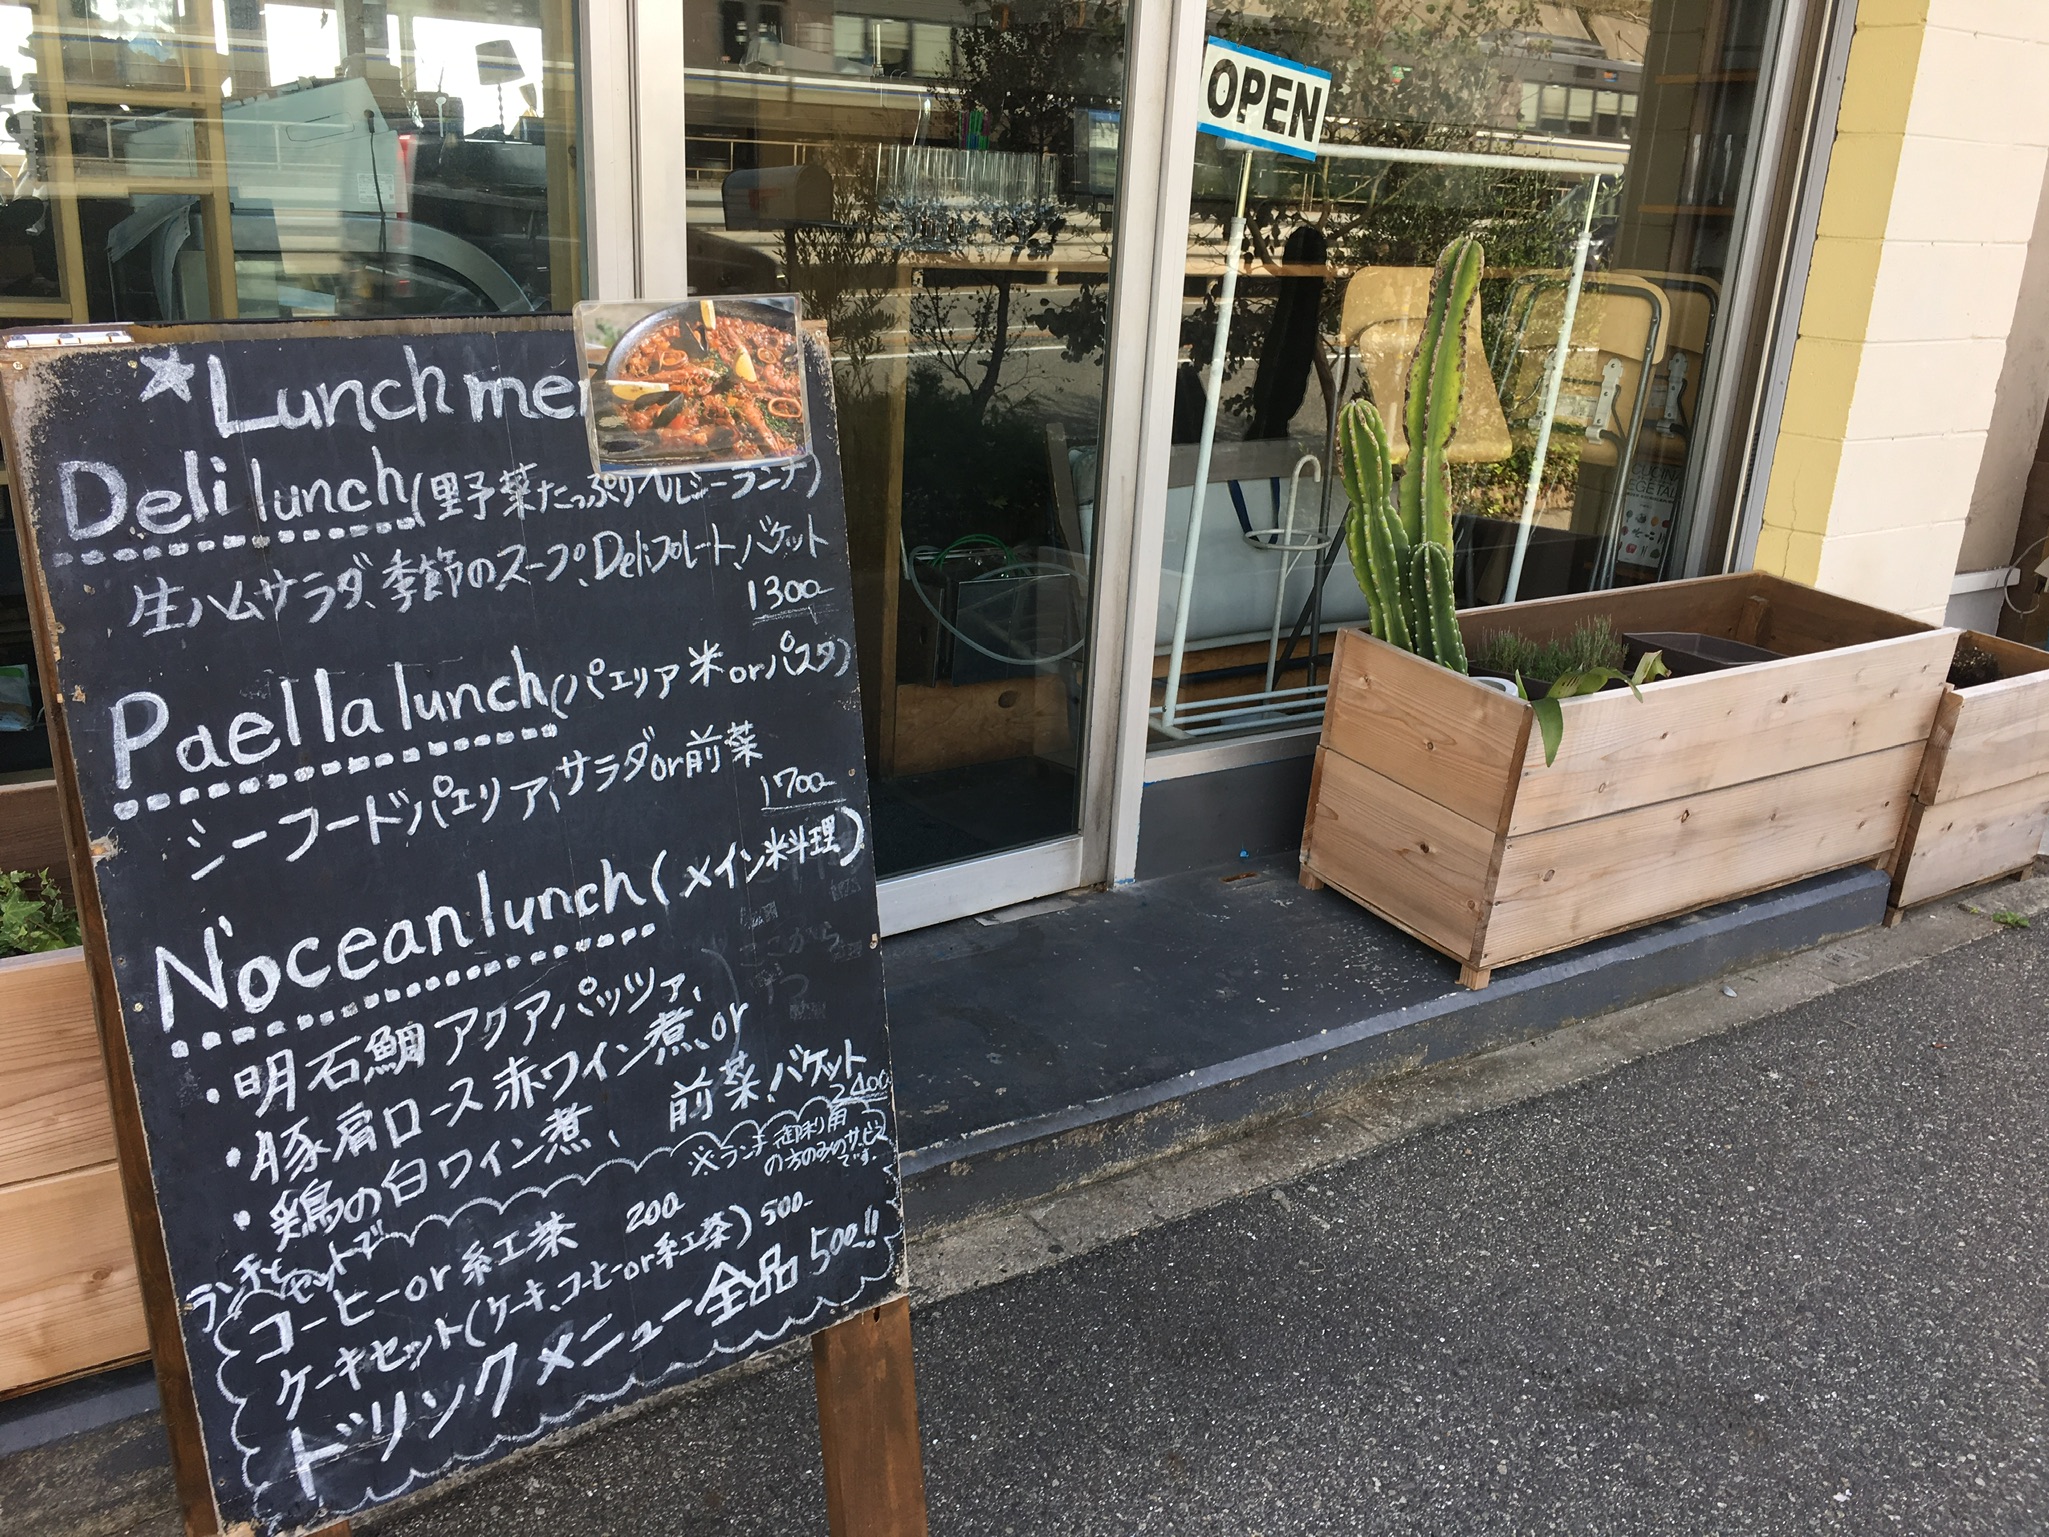 OPEN
*Lunch me
Deli lunch(野菜たっぷりヘルシーランチ)
生ハムサラダ、季節のスープ、Deliプレート、バケット
1300
Paella lunch(パエリア米orパスタ)
シーフードパエリア、サラダor前菜
1700
N'ocean lunch(メイン料理)
・明石鯛アクアパッツァ、
・豚肩ロース赤ワイン煮、or
・鶏の白ワイン煮、 前菜、バケット
2400
※ランチ御利用
の方のみのサービス
です。
ランチとセットで
コーヒーor紅茶 200
ケーキセット(ケーキ、コーヒーor紅茶) 500-
ドリンクメニュー全品500-!!
CUCINA